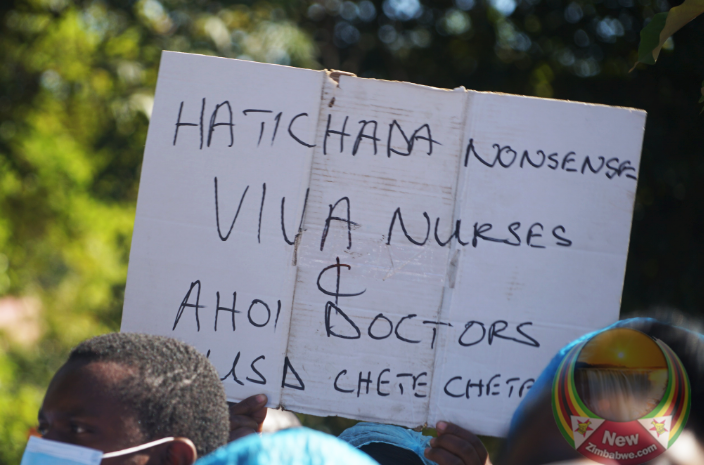 HATICHADA NONSENSE
VIVA NURSES
¢
AHOI DOCTORS
USD CHETE CHETE
New
Zimbabwe.com